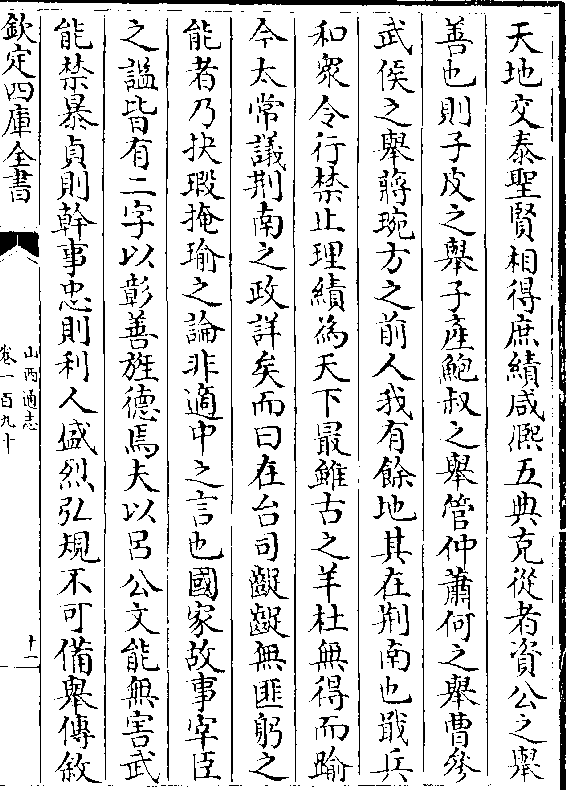 天地交泰聖賢相得庶績咸熈五典克從者資公之舉
善也則子皮之舉子產鮑叔之舉管仲蕭何之舉曹參
武侯之舉蔣琬方之前人我有餘地其在荆南也戢兵
和衆令行禁止理績為天下最雖古之羊杜無得而踰
今太常議荆南之政詳矣而曰在台司齪齪無匪躬之
能者乃抉瑕掩瑜之論非適中之言也國家故事宰臣
之謚皆有二字以彰善旌德焉夫以吕公文能無害武
能禁暴貞則幹事忠則利人盛烈弘規不可備舉傳敘
欽定四庫全書
山西通志
卷一百九十
十一